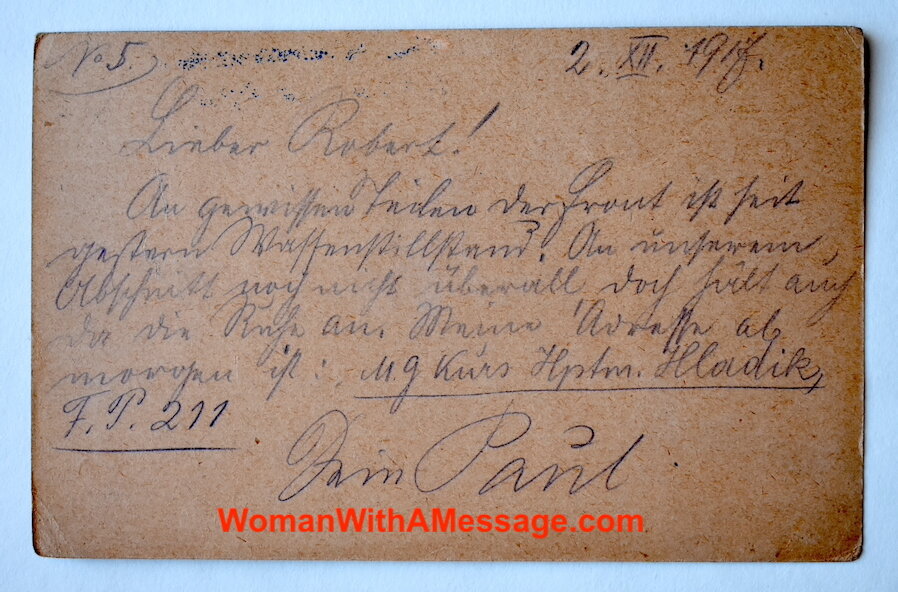 No 5.
2. XII. 1917.
Lieber Robert!
An gewissen Teilen der Front ist seit
gestern Waffenstillstand. An unserem
Abschnitt noch nicht überall, doch hält auch
da die Ruhe an. Meine Adresse ab
morgen ist: M.G Kurs Hptm. Hladik,
F.P. 211
Dein Paul
WomanWithAMessage.com